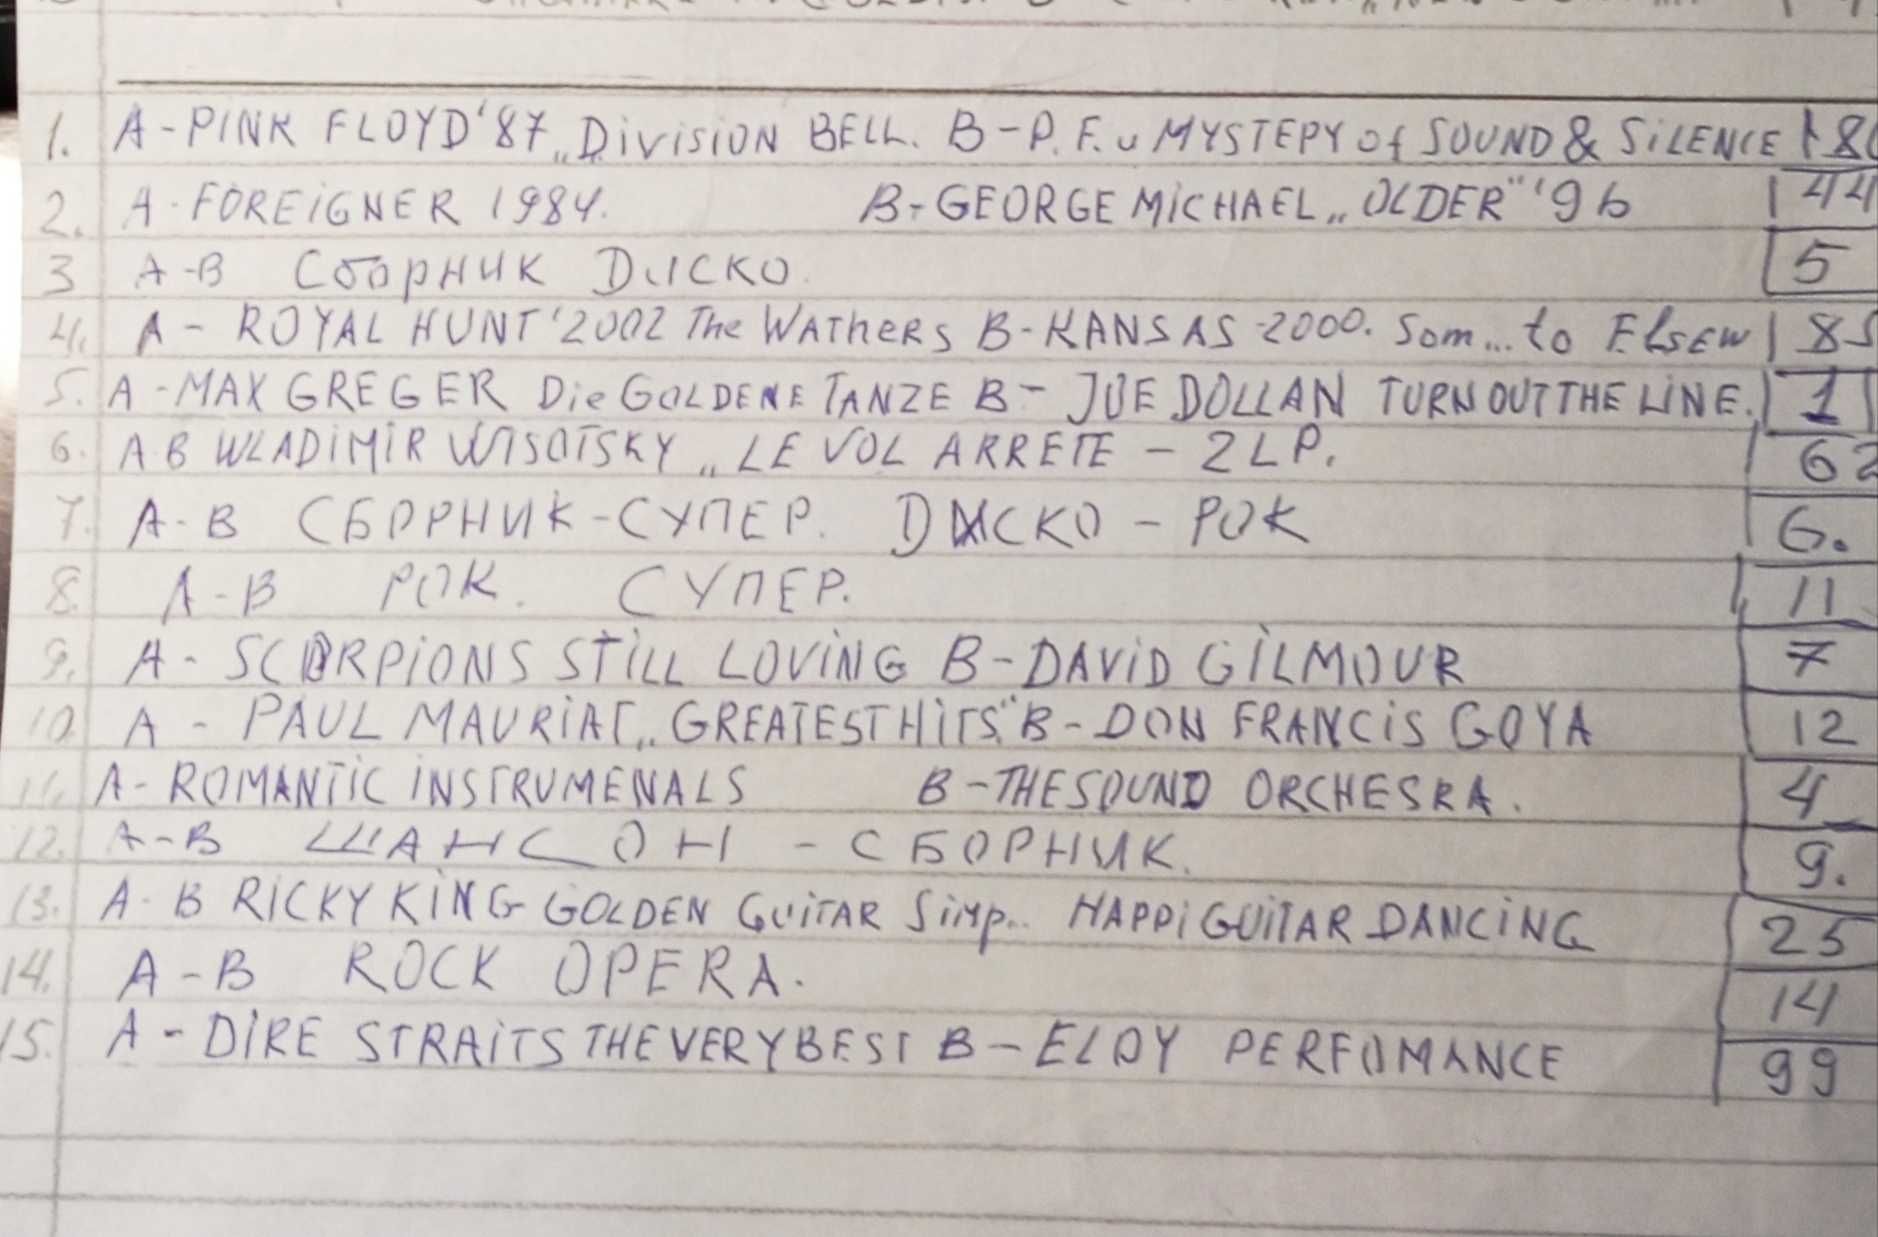 1. A-PINK FLOYD'87 „Division BELL. B-P.F. u MYSTEPY of SOUND & SiLENCE 180
2. A-FOREiGNER 1984. B-GEORGE MiCHAEL „OLDER" '96 44
3 A-B Сборник Диско. 5
4. A- ROYAL HUNT'2002 The WAThERS B-KANSAS-2000. Som... to ELSEW 85
5. A-MAX GREGER Die GOLDENE TANZE B- JOE DOLLAN TURN OUT THE LiNE. 1
6. A-B WLADiMiR WISOTSKY „LE VOL ARRETE - 2LP. 62
7. A-B СБОРНИК-СУПЕР. ДИСКО - РОК 6.
8. A-B РОК. СУПЕР. 11
9. A- SCORPiONS STiLL LOViNG B-DAViD GiLMOUR 7
10. A - PAUL MAURiAT „GREATEST HiTS." B-DON FRANCiS GOYA 12
11. A-ROMANTiC iNSTRUMENALS B-THE SOUND ORCHESRA. 4
12. A-B ШАНСОН - СБОРНИК. 9.
13. A-B RiCKY KiNG GOLDEN GUiTAR Simp... HAPPi GUiTAR DANCiNG 25
14. A-B ROCK OPERA. 14
15. A-DiRE STRAiTS THE VERY BEST B-ELOY PERFOMANCE 99